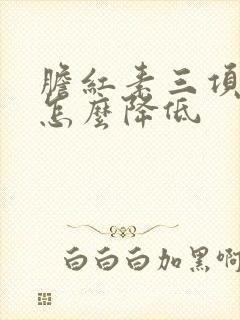 膽紅素三項
怎麼降低
白白白加黑啊